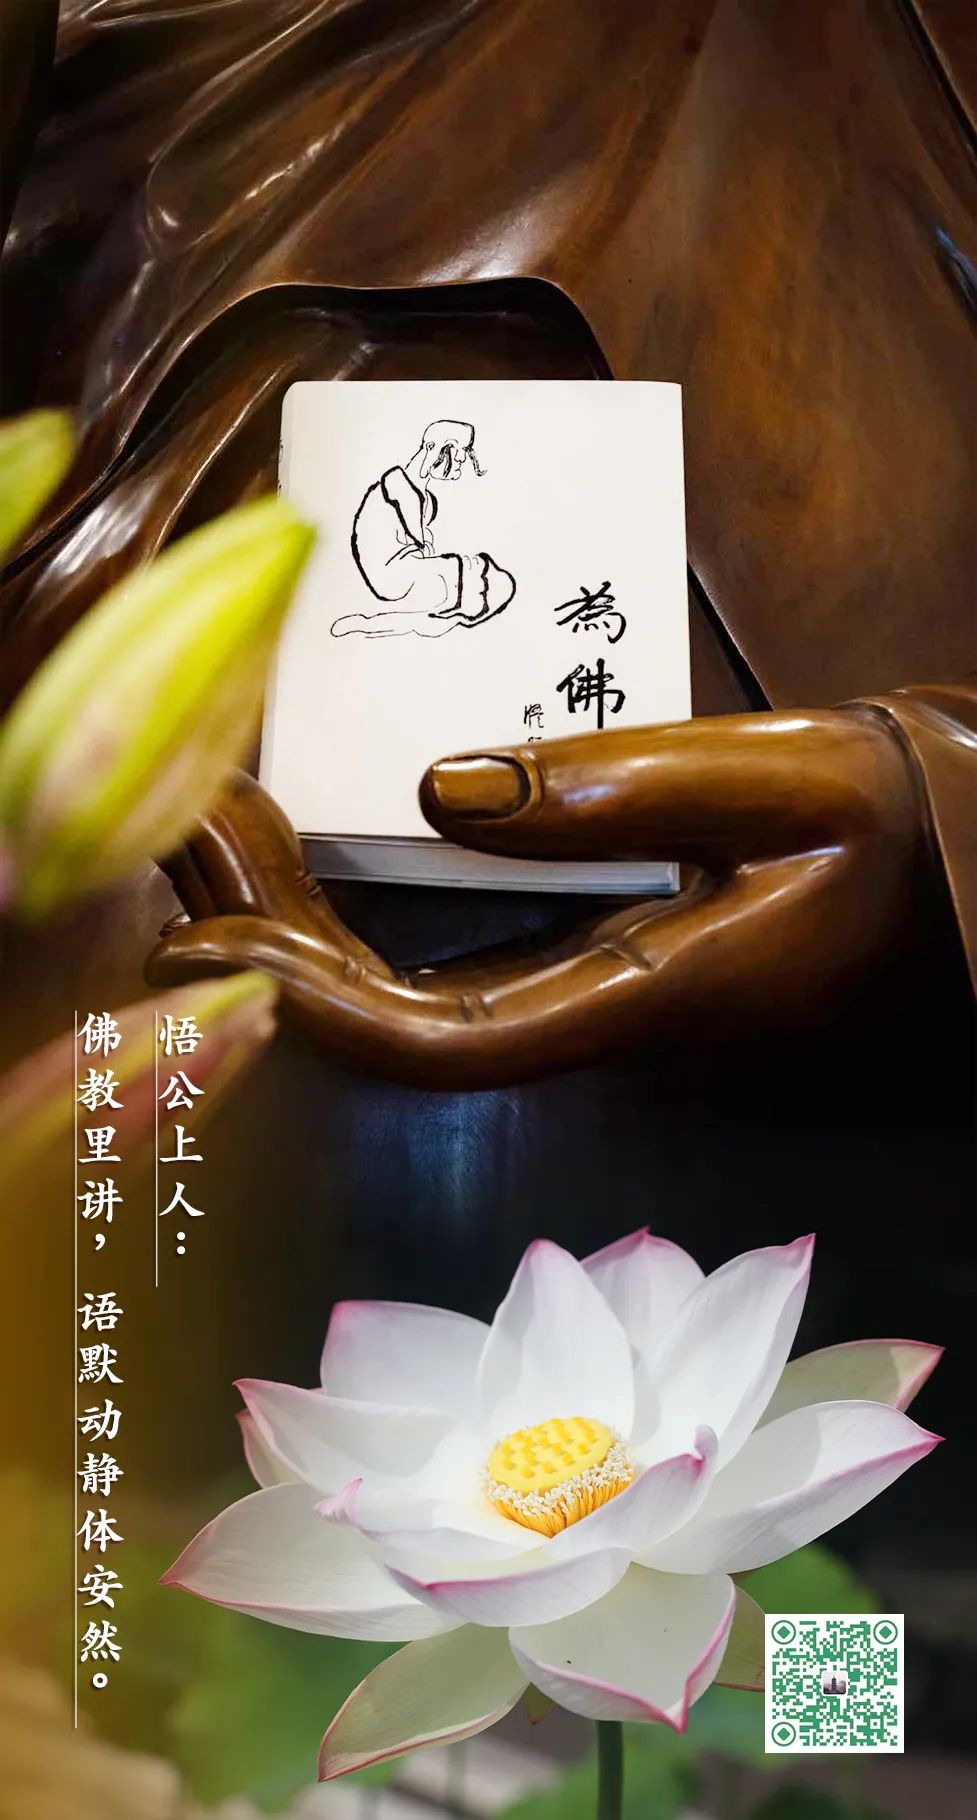 為佛
悟公上人：
佛教里讲，语默动静体安然。